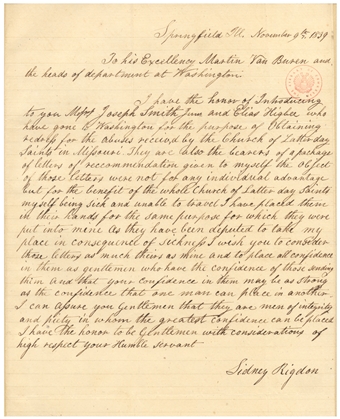 Springfield Ill. November 9th, 1839
To his Excellency Martin Van Buren and
the heads of department at Washington
I have the honor of Introducing
to you Messrs Joseph Smith Junr and Elias Higbee who
have gone to Washington for the purpose of Obtaining
redress for the abuses received by the Church of Latter day
Saints in Missouri. They are also the bearers of a package
of letters of recommendation given to myself the object
of those letters were not for any individual advantage
but for the benefit of the whole Church of Latter day Saints
myself being sick and unable to travel I have placed them
in their hands for the same purpose for which they were
put into mine As they have been deputed to take my
place in consequence of sickness I wish you to consider
those letters as much theirs as mine and to place all confidence
in them as gentlemen who have the confidence of those sending
them And that your confidence in them may be as strong
as the confidence that one man can place in another,
I can assure you Gentlemen that they are men of integrity
and piety in whom the greatest confidence can be placed
I have the honor to be Gentlemen with considerations of
high respect your Humble servant
Sidney Rigdon